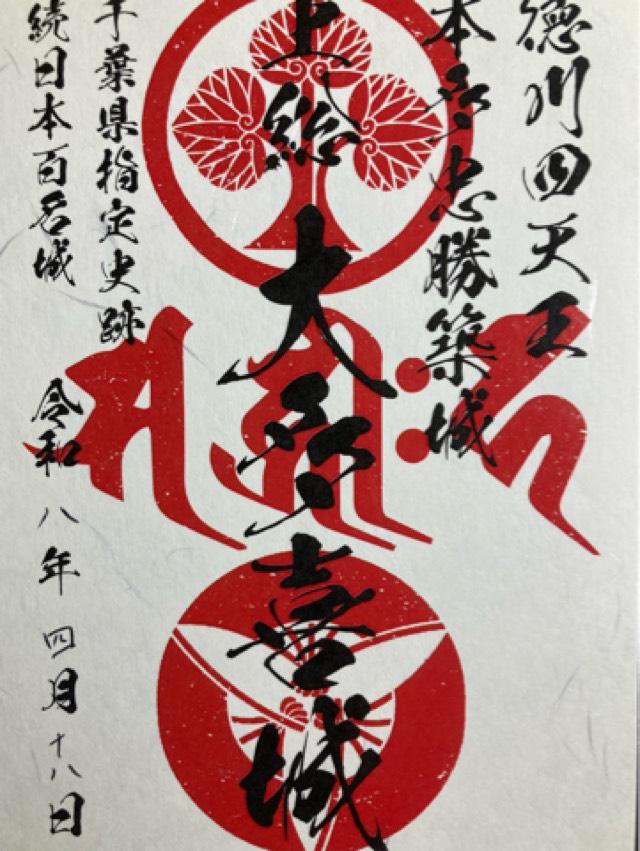 徳川四天王
本多忠勝築城
上総 大多喜城
千葉県指定史跡
続日本百名城
令和八年四月十八日